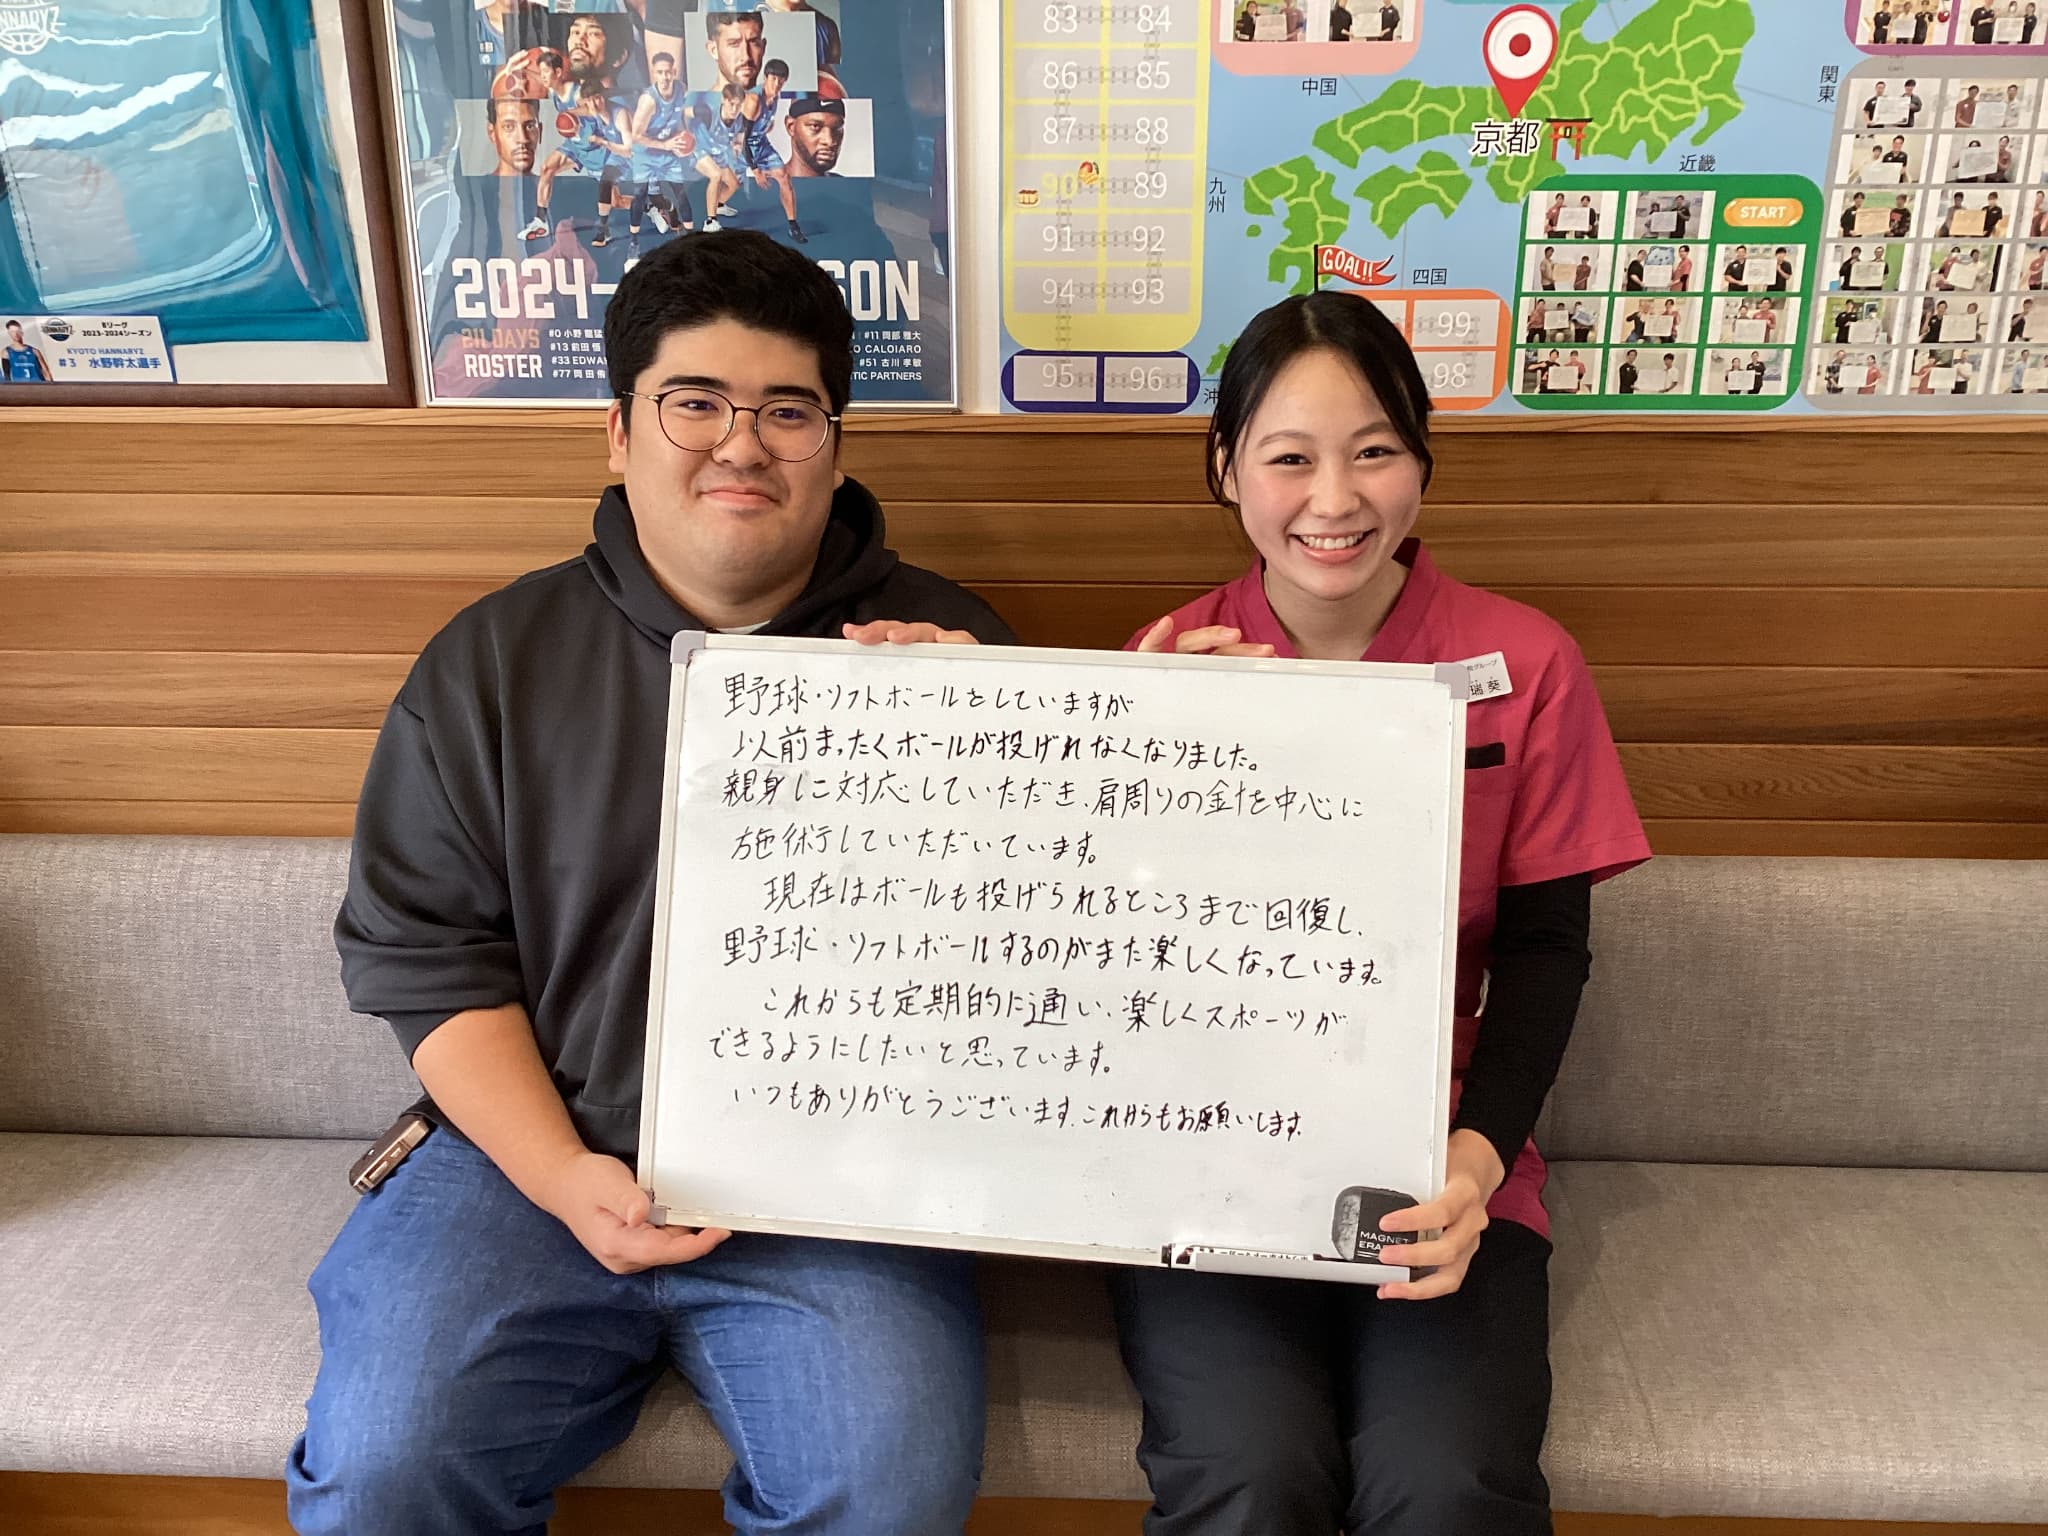 83 84
86 85
87 88
90 89
91 92
94 93
95 96
中国
関東
京都
近畿
九州
四国
START
GOAL!!
99
98
HANNARYZ
Bリーグ
2023-2024シーズン
KYOTO HANNARYZ
#3 水野幹太選手
2024-
SON
211 DAYS
ROSTER
#0 小野 龍猛
#13 前田 悟
#33 EDWA
#77 岡田 侑
#11 岡部 雅大
O CALOIARO
#51 古川 孝敏
TIC PARTNERS
グループ
瑞葵
野球・ソフトボールをしていますが
以前まったくボールが投げれなくなりました。
親身に対応していただき、肩周りの針を中心に
施術していただいています。
現在はボールも投げられるところまで回復し、
野球・ソフトボールするのがまた楽しくなっています。
これからも定期的に通い、楽しくスポーツが
できるようにしたいと思っています。
いつもありがとうございます。これからもお願いします。
MAGNET
ERA